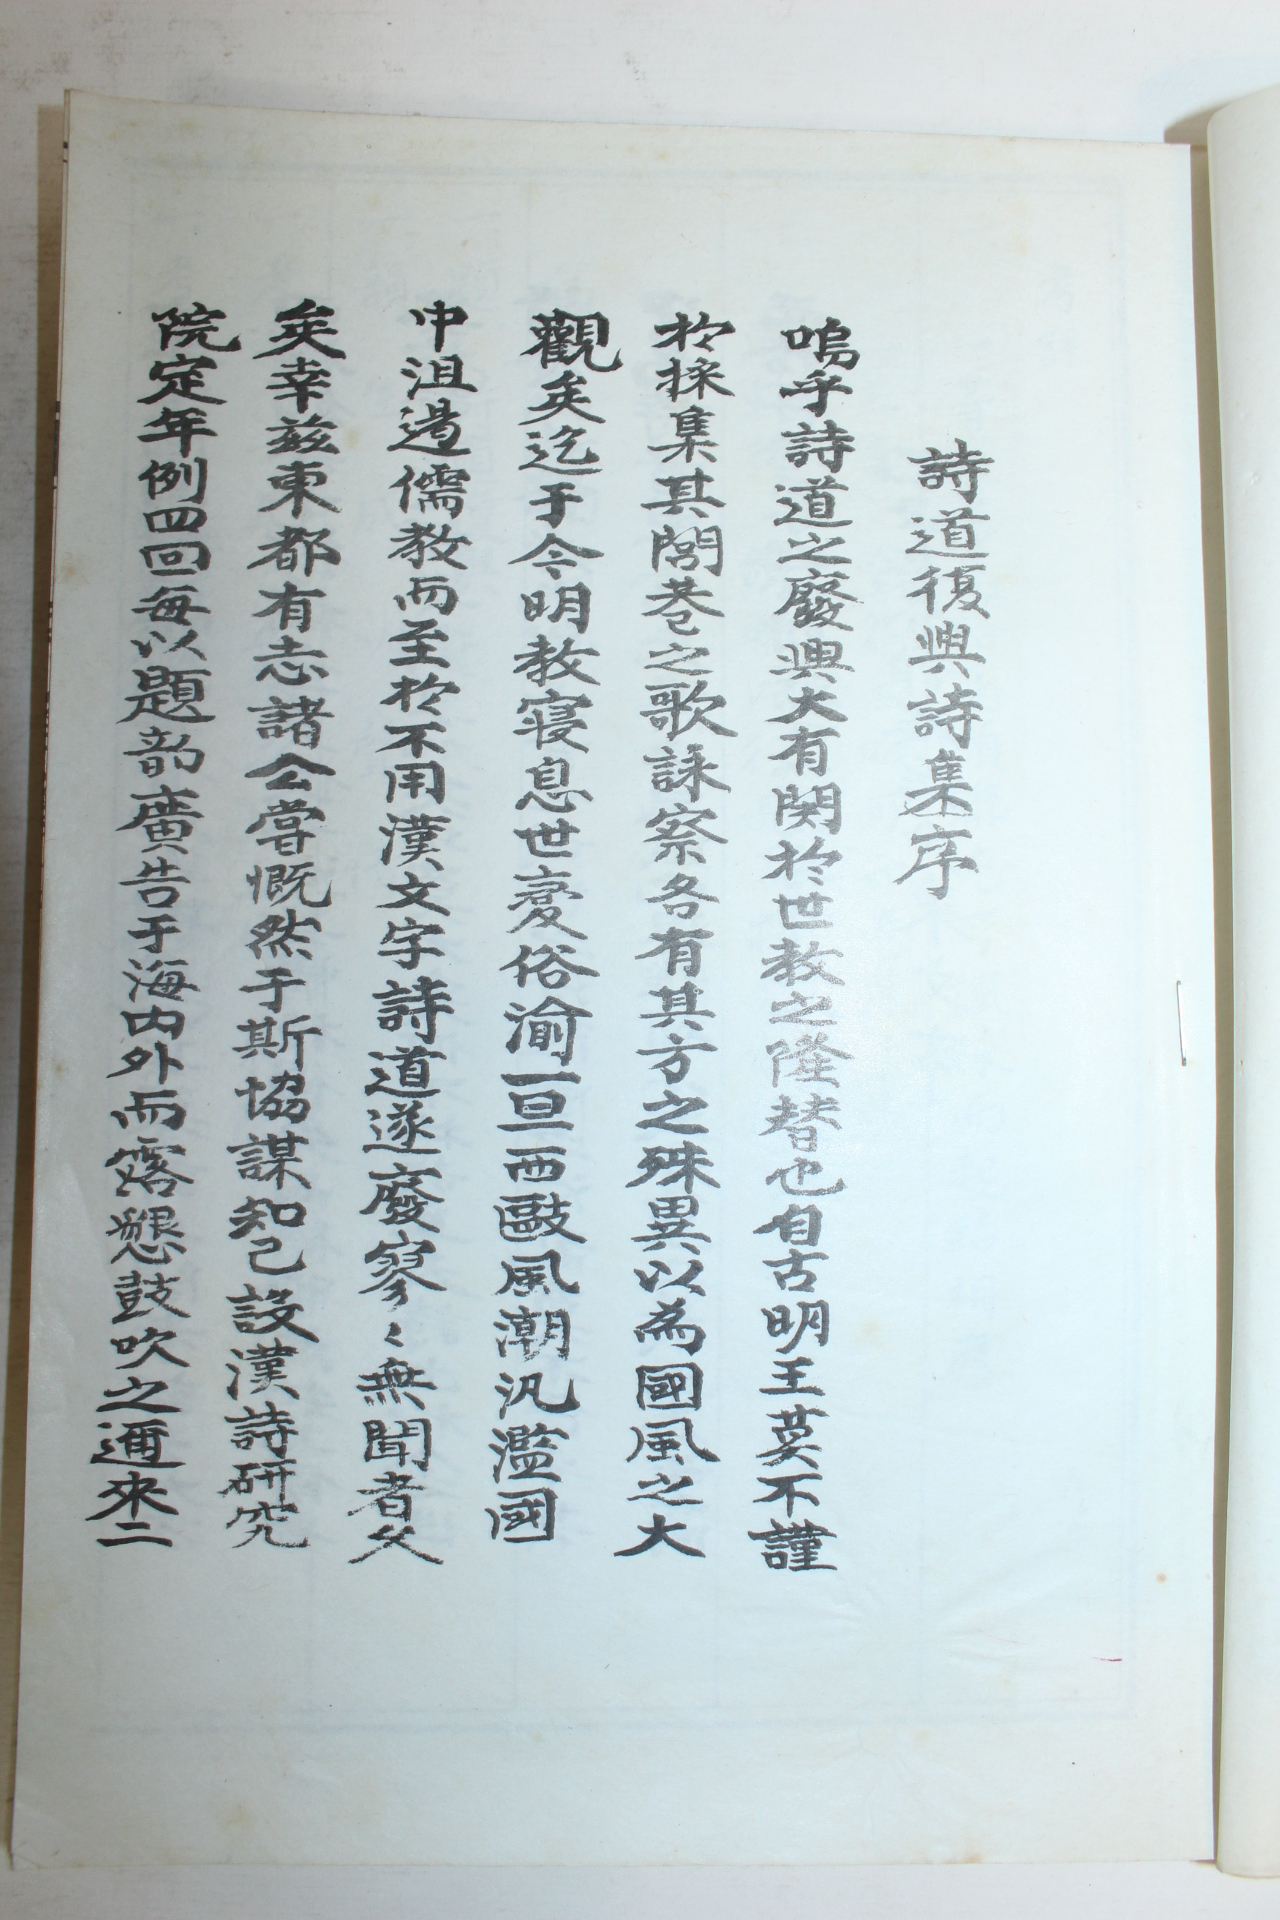 詩道復興詩集序
嗚乎詩道之廢興大有関於世教之隆替也自古明王莫不謹
於採集其閭巷之歌詠察各有其方之殊異以為國風之大
觀矣迄于今明教寝息世変俗渝一旦西歐風潮汎濫國
中沮遏儒教而至於不用漢文字詩道遂廢寥々無聞者久
矣幸茲東都有志諸公嘗慨然于斯協謀知己設漢詩研究
院定年例四回每以題韵廣告于海內外而露懇鼓吹之邇來二